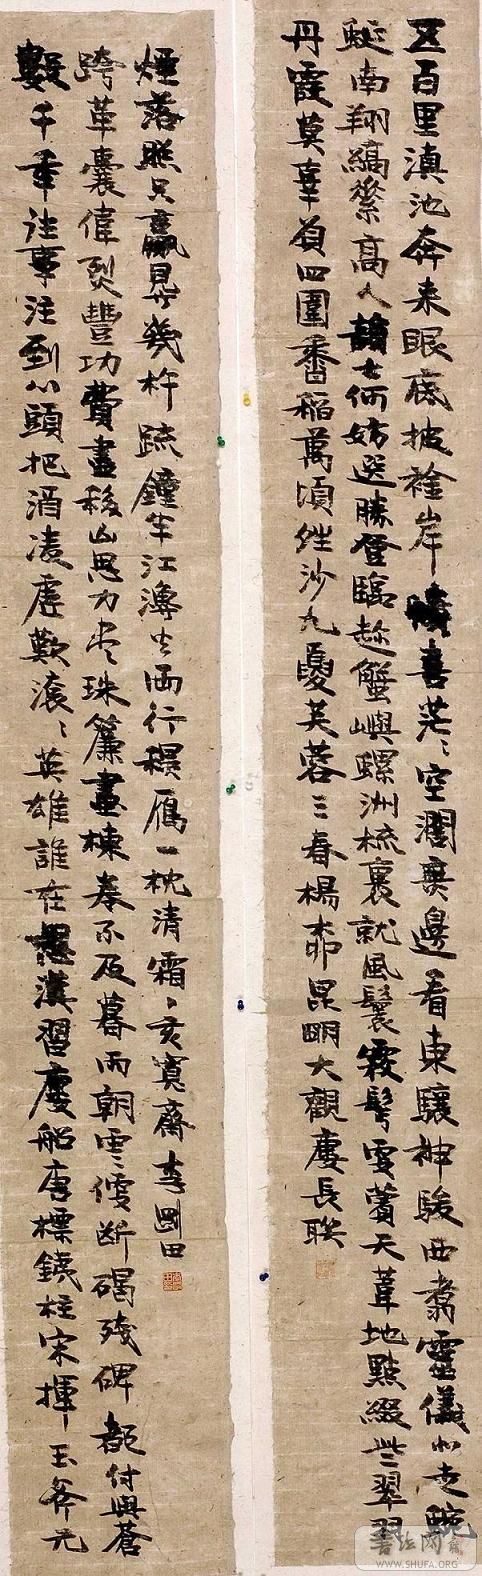 五百里滇池奔来眼底披襟岸幘喜茫ミ空濶無邊看東驤神駿西翥靈儀北走蜿
蜒南翔縞素高人韻士何妨選勝登臨趁蟹嶼螺洲梳裹就風鬟霧鬢更蘋天葦地點綴些翠羽
丹霞莫辜負四圍香稻萬頃晴沙九夏芙蓉三春楊柳昆明大觀樓長联
數千年往事注到心頭把酒凌虛歎滾ミ英雄誰在想漢習樓船唐標鐵柱宋揮玉斧元
跨革囊偉烈豐功費盡移山思力尽珠簾畫棟卷不及暮雨朝雲便断碣殘碑都付與蒼
煙落照只赢得幾杵疏鐘半江漁火兩行穐雁一枕清霜
李剛田
書法网
WWW.SHUFA.ORG